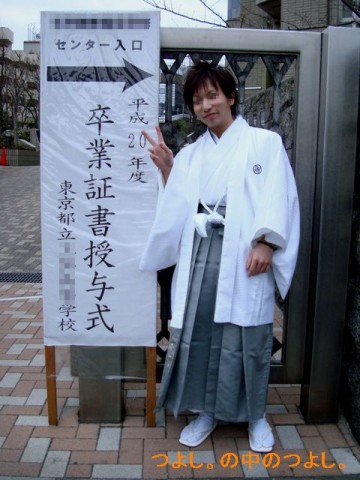 センター入口
平成20年度
卒業証書授与式
東京都立
学校
つよし。の中のつよし。